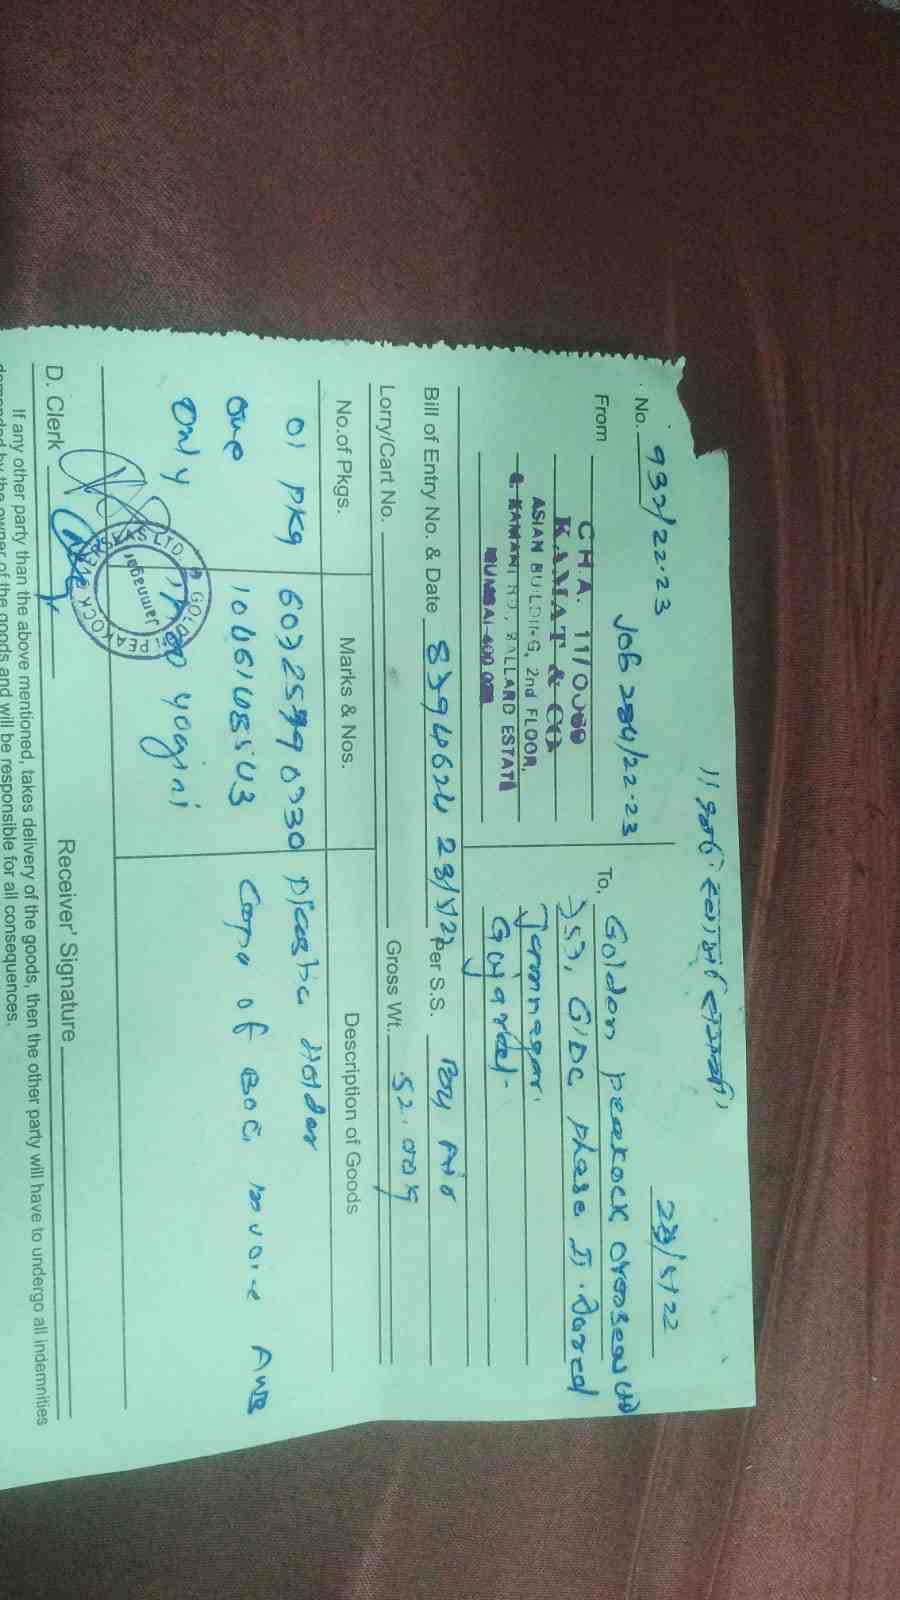 No. 932/22-23
Job 284/22-23
23/5/22
From
C.H.A. 11/0
KAMAT & CO
ASIAN BUILDING, 2nd FLOOR,
R. KAMANI RD, BALLARD ESTATE
MUMBAI-400 001
To, Golden peakock overseas Ltd
GIDC phase II. Dared
Jamnagar.
Gujarat.
Bill of Entry No. & Date 8394624 23/5/22 Per S.S. By Air
Lorry/Cart No. Gross Wt. 52.00
No.of Pkgs. Marks & Nos. Description of Goods
01 pkg Plastic Holder
one Copy of BOE, invoice AWB
only yogini
GOLDEN PEAKOCK OVERSEAS LTD
Jamnagar
D. Clerk Receiver' Signature
If any other party than the above mentioned, takes delivery of the goods, then the other party will have to undergo all indemnities
demanded by the owner of the goods and will be responsible for all consequences.